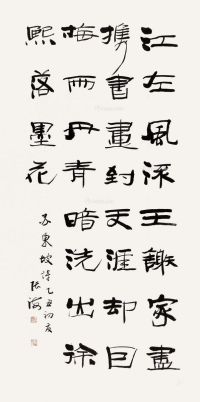 江左風流王謝家盡
攜書畫到天涯却因
梅雨丹青暗洗出徐
熙落墨花
蘇東坡詩乙丑初夏
張海